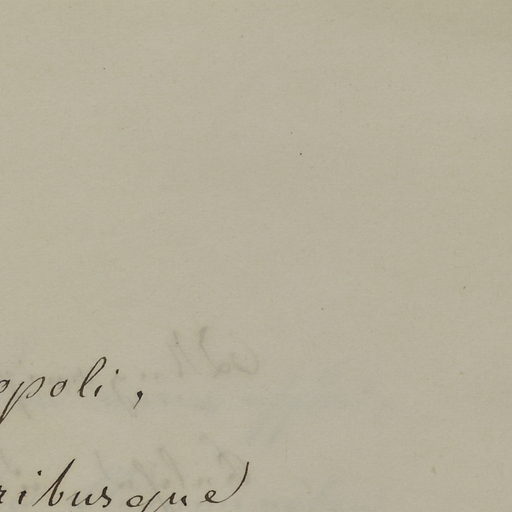 opoli,
ribusque